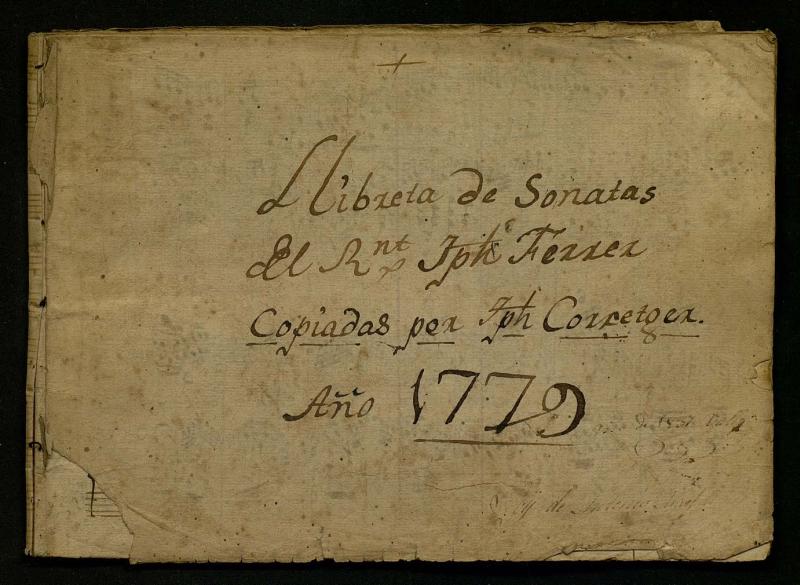 +
Llibreta de Sonatas
del Rnt Iph Ferrer
Copiadas per Iph Corretger.
Año 1779
de